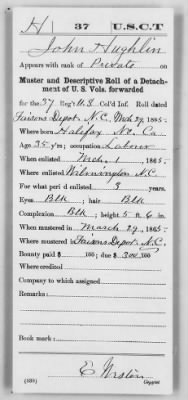 H 37 U.S.C.T
John Hughlin
Appears with rank of Private on
Muster and Descriptive Roll of a Detachment
of U. S. Vols. forwarded
for the 37 Reg't U.S. Col'd Inf. Roll dated
Faisons Depot N.C. Mch 29, 1865.
Where born Halifax No. Ca
Age 35 y'rs; occupation Labour
When enlisted Mch. 1, 1865.
Where enlisted Wilmington N.C.
For what period enlisted 3 years.
Eyes Blk; hair Blk
Complexion Blk; height 5 ft. 6 in.
When mustered in March 29, 1865.
Where mustered in Faisons Depot, N.C.
Bounty paid $ 100; due $ 300 100
Where credited
Company to which assigned
Remarks:
Book mark:
(339) Copyist